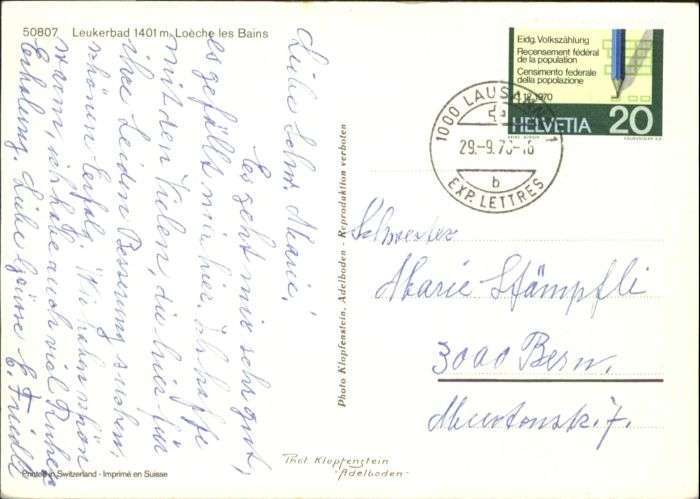 50807 Leukerbad 1401 m Loèche les Bains
Liebe Schw. Marie!
Es geht mir sehr gut,
es gefällt mir hier. Ich hoffe
mit den Vielen, die hier für
ihre Leiden Besserung suchen,
schönen Erfolg. Wir haben schön
warm, ich habe auch viel Ruhe
Erholung. Liebe Grüsse E. Friedli
Printed in Switzerland - Imprimé en Suisse
Photo Klopfenstein, Adelboden - Reproduktion verboten
Phot. Klopfenstein
"Adelboden"
Eidg. Volkszählung
Recensement fédéral
de la population
Censimento federale
della popolazione
1.12.1970
HELVETIA 20
1000 LAUSANNE 1
29.-9.70-18
b
EXP. LETTRES
Schwester
Marie Stämpfli
3000 Bern.
Murtenstr. 7.